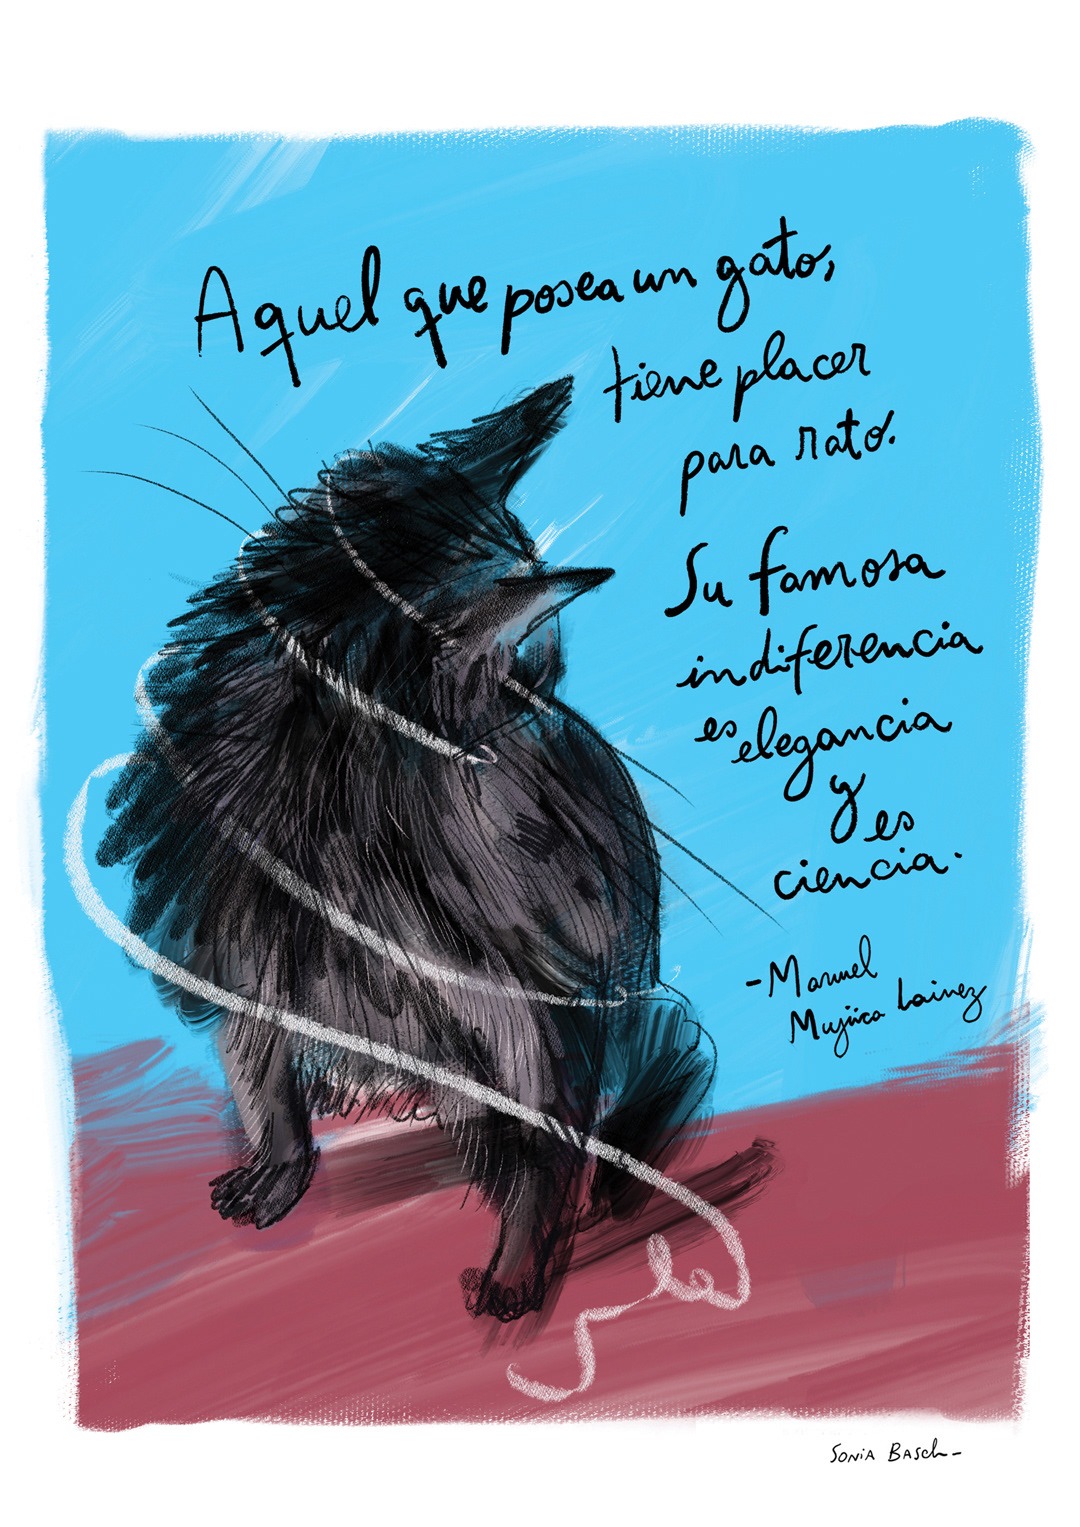 Aquel que posea un gato,
tiene placer
para rato.
Su famosa
indiferencia
es elegancia
y
es
ciencia.
- Manuel
Mujica Lainez
SONIA BASCH -